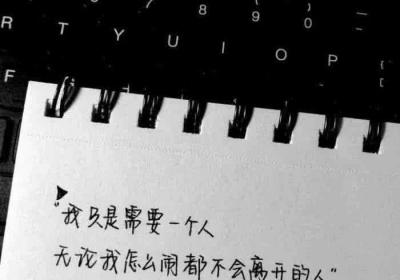 7 8 9 0
R T Y U I O P
F
"我只是需要一个人
无论我怎么闹都不会离开的人"